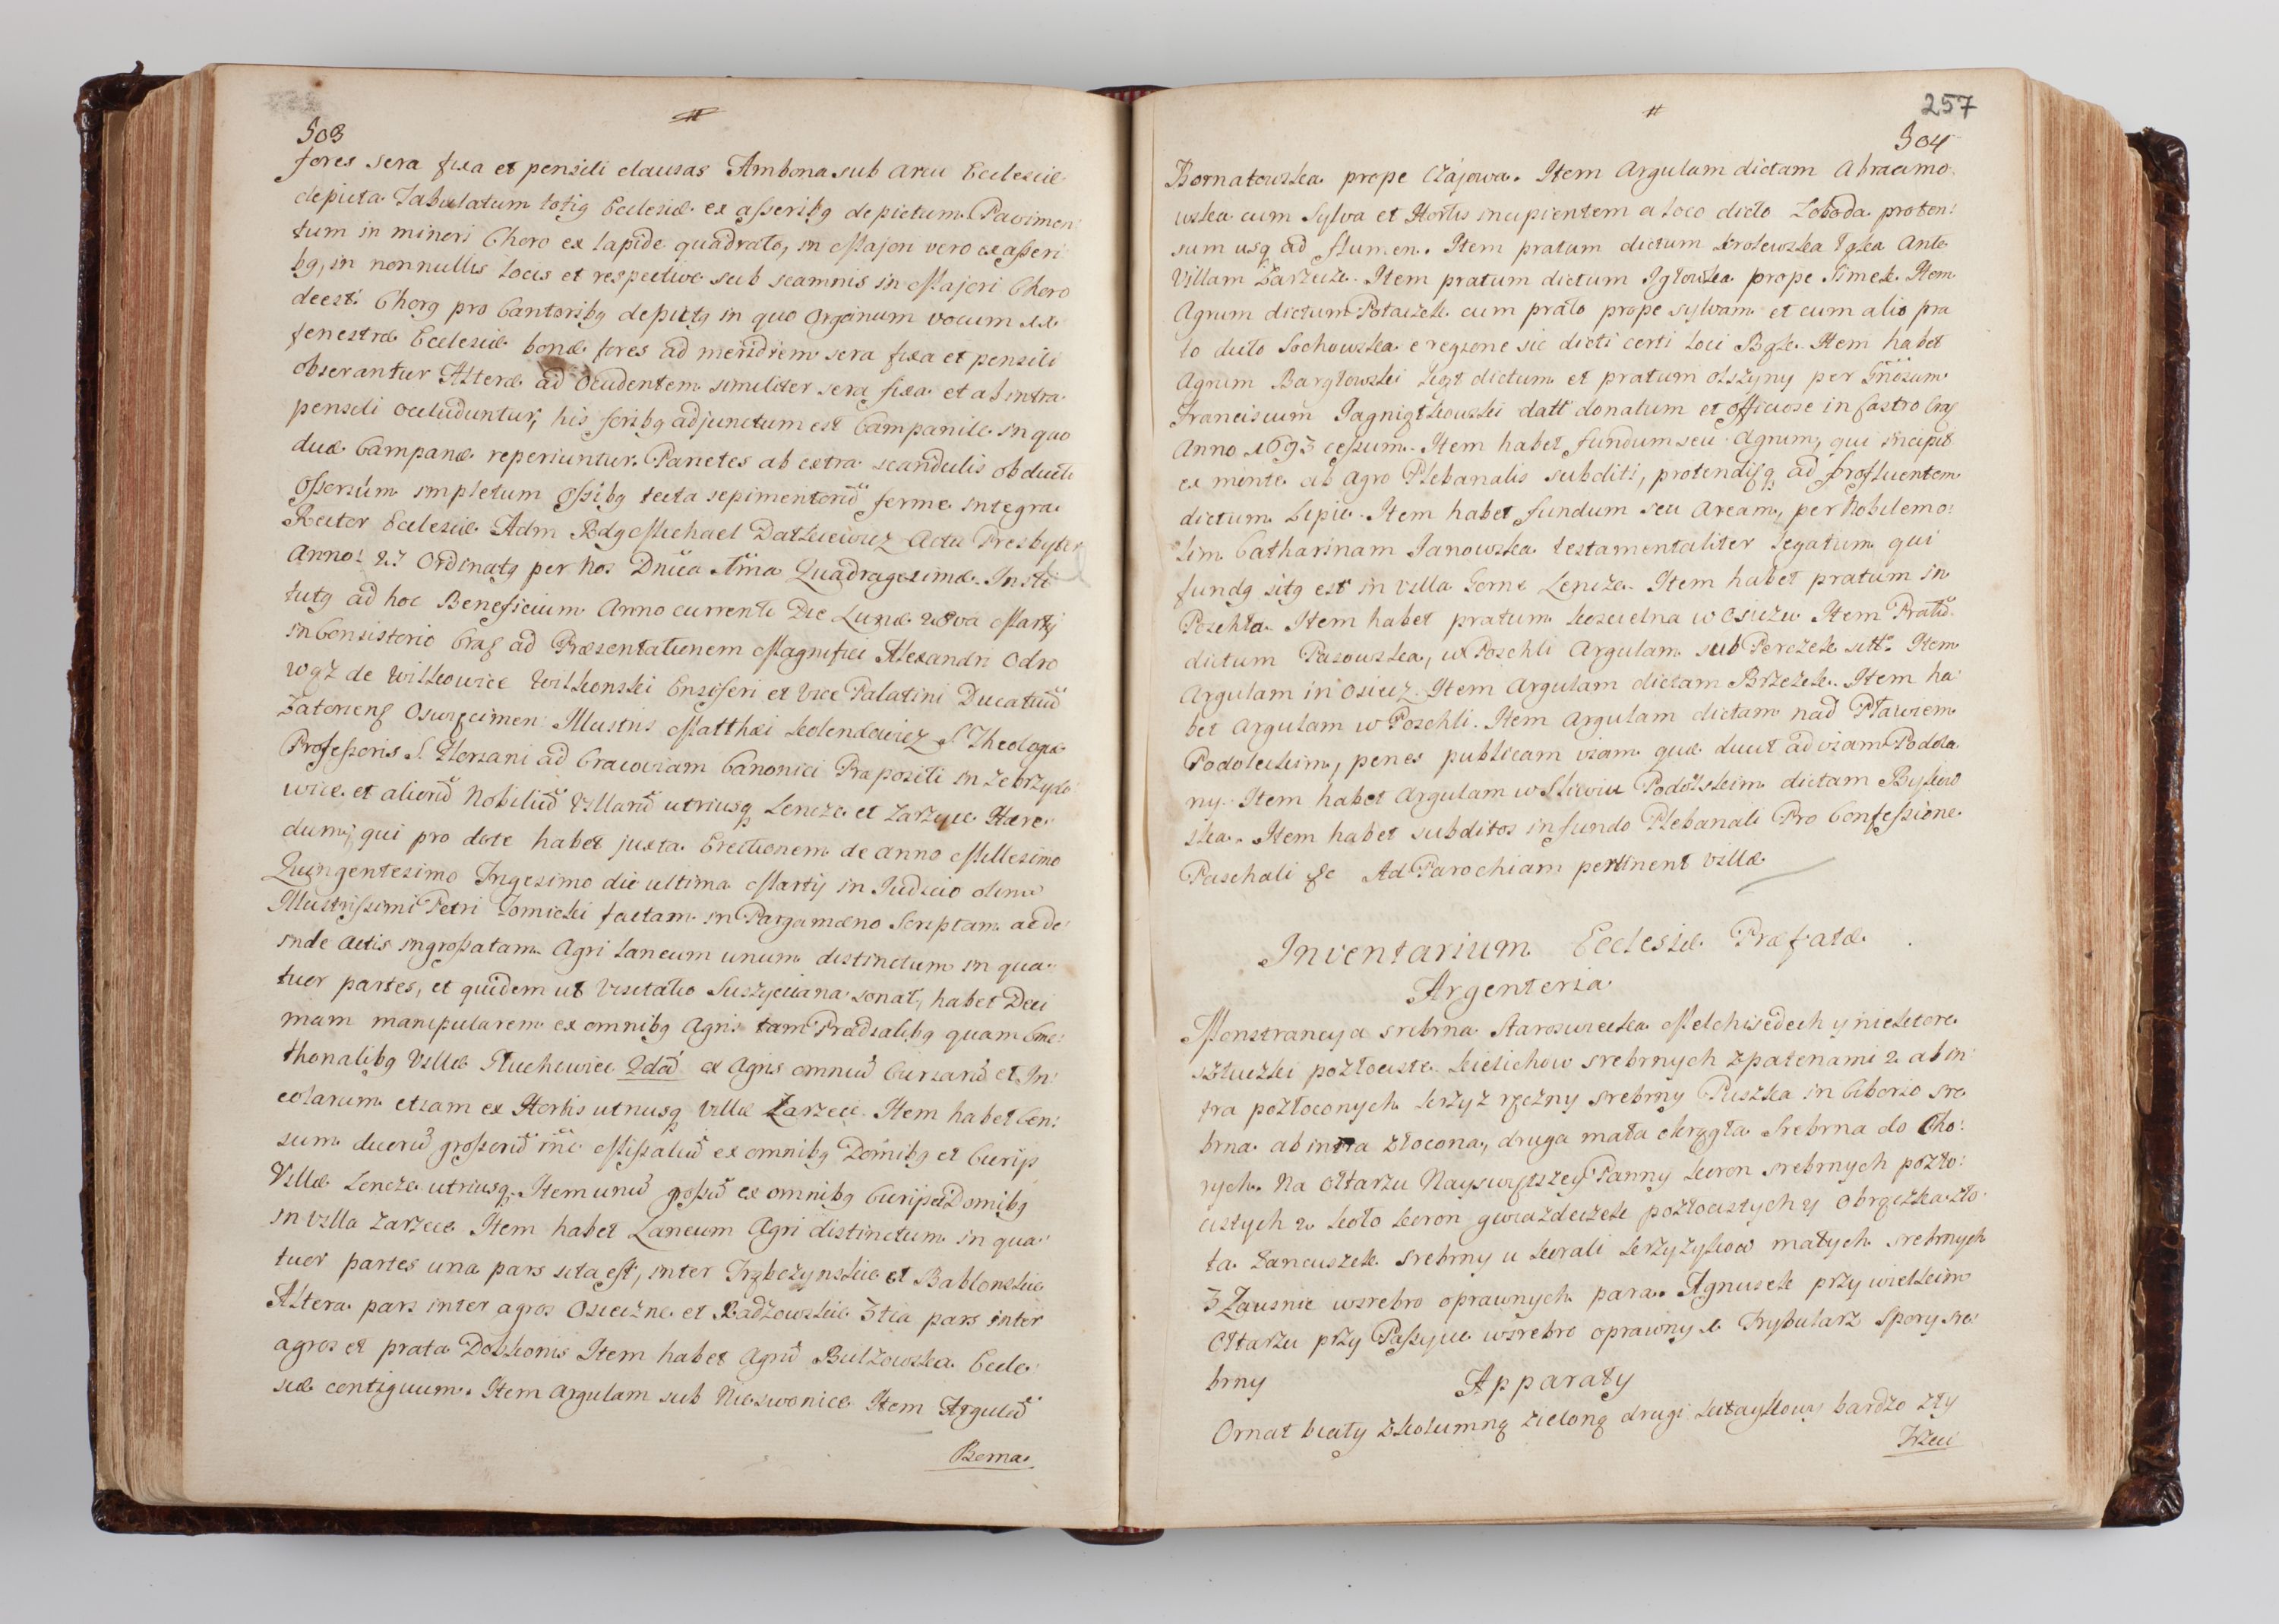 503
fores sera fixa et pensili clausas Ambona sub arcu Ecclesiæ
depicta Tabulatum totiq Ecclesiæ ex asseribq depictum. Pavimen
tum in minori Choro ex lapide quadrato, in Majori vero ex asseri
bq, in nonnullis locis et respective sub scamnis in Majori Choro
deest. Chorq pro Cantoribq depictq in quo Organum vocum
fenestræ Ecclesiæ bonæ fores ad meridiem sera fixa et pensili
obserantur Alteræ ad Occidentem similiter sera fixa et ab intra
pensili occluduntur, his foribq adjunctum est Campanile in quo
duæ Campanæ reperiuntur. Parietes ab extra scandulis obducti
Ossorium impletum Ossibq tecta sepimentorũ ferme integra
Rector Ecclesiæ Adm Rdq Michael Datkiewicz Actu Presbyter
Anno: Ordinatq per nos Dnĩca Quadragesimæ. Insti
tutq ad hoc Beneficium Anno currenti Die Lunæ 28va Martij
in Consistorio Crac ad Præsentationem Magnifici Alexandri Odro
wąz de Wilkowice Wilkonski Ensiferi et Vice Palatini Ducatuũ
Zatorien Oswięcimen Illustris Matthæi Kolendowicz S. Theologiæ
Professoris S. Floriani ad Cracoviam Canonici Præpositi in Zebrzydo
wice et aliorũ Nobiliũ Villarũ utriusq Lencze et Zarzyce Hære
dum, qui pro dote habet juxta Erectionem de anno Millesimo
Quingentesimo Trigesimo die ultima Martij in Judicio olim
Illustrissimi Petri Tomicki factam in Pargamæno Scriptam ac de
inde Actis ingrossatam Agri Laneum unum distinctum in qua
tuor partes, et quidem ut Visitatio Suszyciana sonat, habet Deci
mam manipularem ex omnibq Agris tam Prædialibq quam Cme:
thonalibq Villæ Stuchowice ex Agris omniũ Curiarũ et In:
colarum etiam ex Hortis utriusq Villæ Zarzece. Item habet Cen:
sum duorũ grossorũ Missaliũ ex omnibq Domibq et Curijs
Villæ Lencze utriusq. Item unũ grossũ ex omnibq Curijs et Domibq
in Villa Zarzece Item habet Laneum Agri distinctum in qua
tuor partes una pars sita est, inter Trębczynskie et Bablonskie
Altera pars inter agros Osieczne et Radzowskie 3tia pars inter
agros et prata Dobkonis Item habet Agrũ Bulzowska Eccle
siæ contiguum. Item Argulam sub Nieswonice Item Argulũ
Borna.
#
257
504
Bornatowska prope Czájowa. Item Argulam dictam Abraamo
wska cum Sylva et Hortis incipientem a loco dicto Loboda proten:
sum usq ad flumen. Item pratum dictum Krolewska Ante
Villam Zarzecze. Item pratum dictum Igłowska prope Simek. Item
Agrum dictum Potaczek cum prato prope sylvam et cum alio pra
to dicto Sochowska e regione sic dicti certi loci Item habet
Agrum Bargłowski dictum et pratum Olszyny per Gñosum
Franciscum Jagnigtkowski datt donatum et officiose in Castro Crac
Anno 1693 cessum. Item habet fundum seu Agrum, qui incipit
ex ab Agro Plebanalis subditi, protenditq ad profluentem
dictum Lipie. Item habet fundum seu Aream, per Nobilemo:
lim Catharinam Janowska testamentaliter legatum qui
fundq sitq est in villa Gorne Lencze. Item habet pratum in
Poschła. Item habet pratum koscielna w Osieczu Item Pratũ
dictum Pasowska, w Poschli Argulam sub Perczek Item
Argulam in Osiecz. Item Argulam dictam Brzezek. Item ha
bet Argulam w Poschli. Item Argulam dictam nad Pławiem
Podoleckim, penes publicam viam quæ ducit ad viam Podola
ny. Item habet Argulam w Podolskim dictam Byskow
ska. Item habet subditos in fundo Plebanali Pro Confessione
Paschali &c Ad Parochiam pertinent villæ
Inventarium Ecclesiæ Præfatæ
Argenteria
Monstrancya srebrna staroswiecka Melchisedech y niektore
sztuczki pozłociste. Kielichow srebrnych z patenami 2 ab in:
tra pozłoconych krzyz ręczny srebrny Puszka in Ciborio sre
brna ab intra złocona, druga mała okrągła Srebrna do Cho:
rych. Na Ołtarzu Nayswiętszey Panny koron srebrnych pozło:
cistych 2 koło koron gwiazdeczek pozłocistych y Obrączka zło
ta Łancuszek srebrny u korali krzyzykow małych srebrnych
3 Zausnic w srebro oprawnych para. Agnusek przy wielkim
Ołtarzu przy Passyce w srebro oprawny Trybularz spory sre
brny
Apparaty
Ornat biały z kolumną zieloną drugi kitaykowy bardzo zły
Trzeci